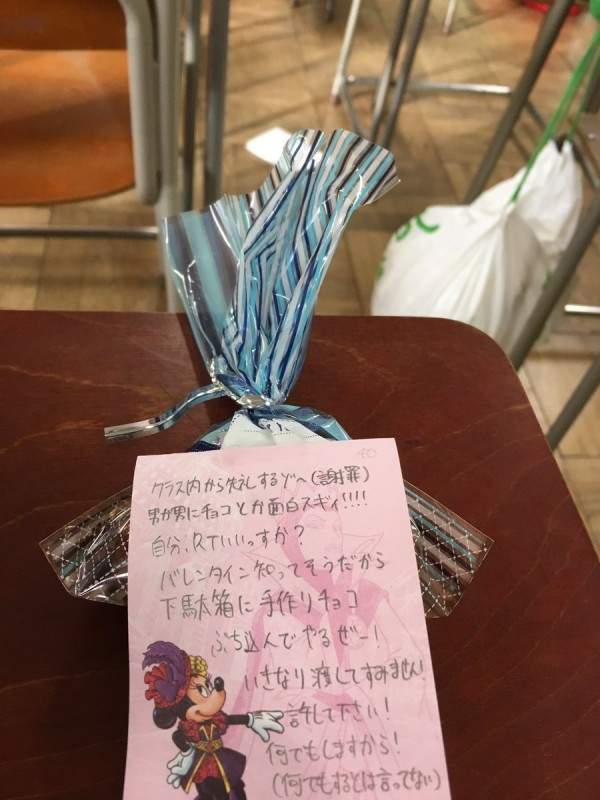 クラス内から失礼するゾ〜(謝罪)
男が男にチョコとか面白スギィ!!!!
自分、RTいいっすか?
バレンタイン知ってそうだから
下駄箱に手作りチョコ
ぶち込んでやるぜー!
いきなり渡してすみません!
許して下さい!
何でもしますから!
(何でもするとは言ってない)